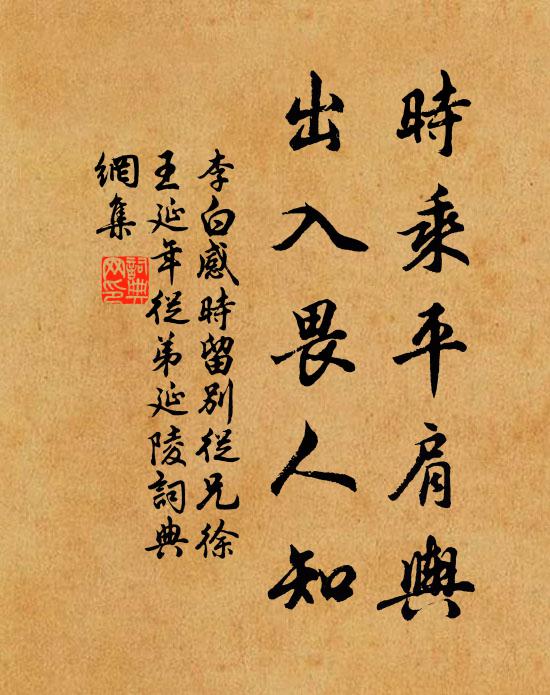 時乘平肩輿
出入畏人知
李白感時留別從兄徐
王延年從弟延陵詞典
網集
詞典
网印